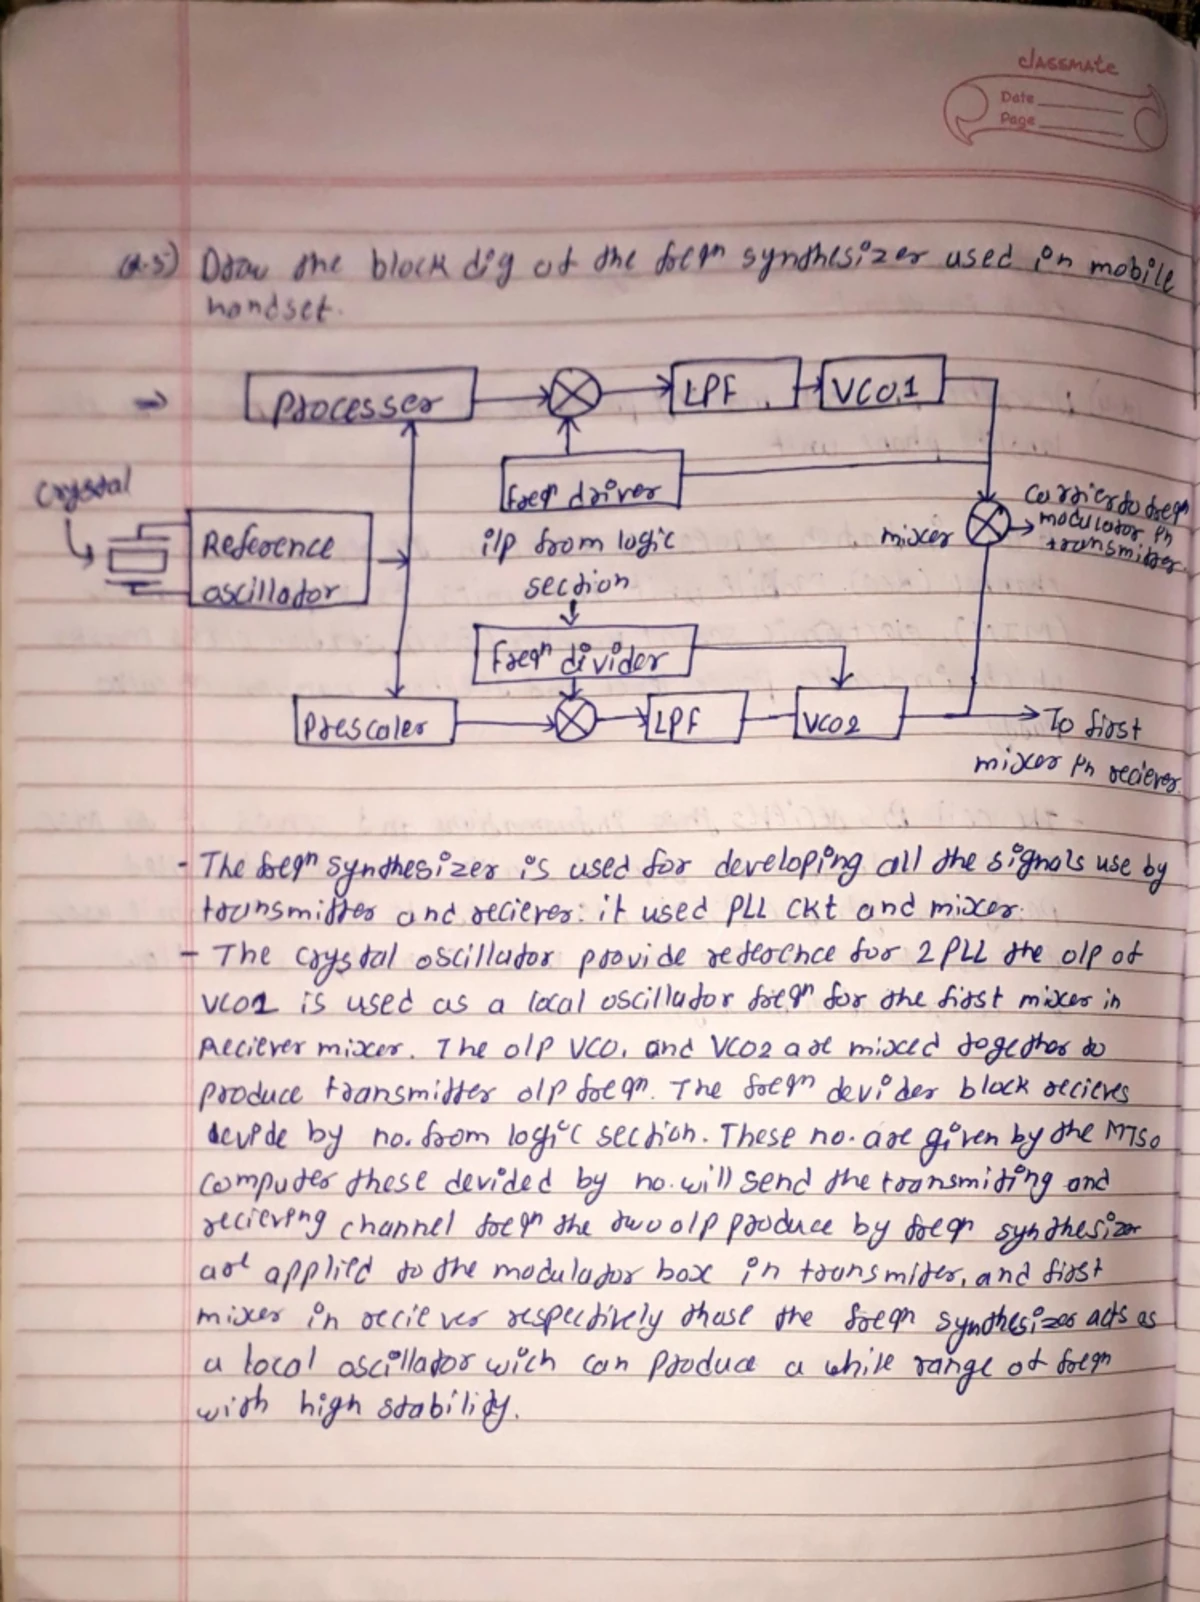 classmate
Date
Page
Q.5) Draw the block dig of the freqn synthesizer used in mobile
handset.
Processer
LPF
VCO1
Crystal
Freqn driver
Reference
oscillator
i/p from logic
section
mixer
Carrier to freqn
modulator in
transmitter
Freqn divider
Prescaler
LPF
VCO2
To first
mixer in reciever
- The freqn synthesizer is used for developing all the signals use by
transmitter and reciever: it used PLL ckt and mixer.
- The crystal oscillator provide reference for 2 PLL the o/p of
VCO1 is used as a local oscillator freqn for the first mixer in
Reciever mixer. The o/p VCO1 and VCO2 are mixed together to
produce transmitter o/p freqn. The freqn devider block recieves
devide by no. from logic section. These no. are given by the MTSO
computer these devided by no. will send the transmiting and
recieving channel freqn the two o/p produce by freqn synthesizer
are applied to the modulator box in transmiter, and first
mixer in reciever respectively thase the freqn synthesizer acts as
a local oscillator wich can produce a while range of freqn
with high stability.